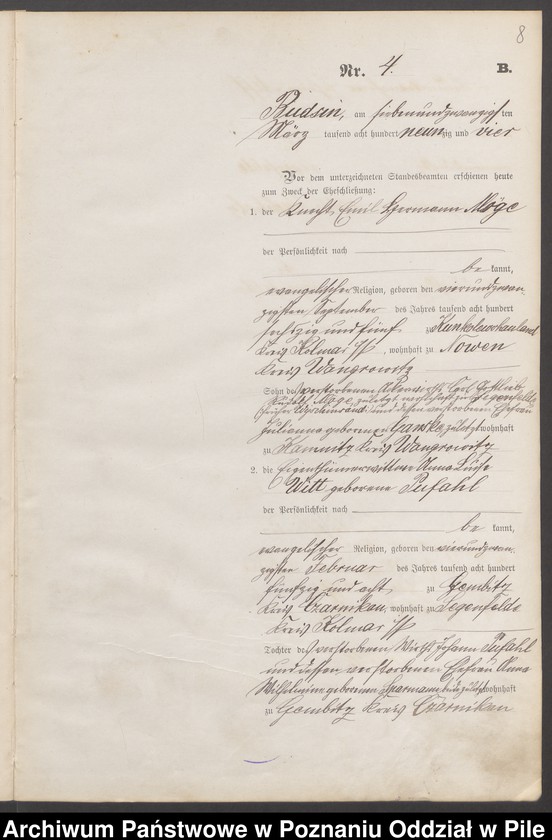 8
Nr. 4. B.
Budsin, am siebenundzwanzigsten
März tausend acht hundert neunzig und vier
Vor dem unterzeichneten Standesbeamten erschienen heute
zum Zweck der Eheschließung:
1. der Knecht Emil Hermann Möge
der Persönlichkeit nach
be kannt,
evangelischer Religion, geboren den vierundzwan-
zigsten September des Jahres tausend acht hundert
sechszig und fünf zu
Kreis Kolmar i/P, wohnhaft zu Nowen
Kreis Wongrowitz
Sohn des verstorbenen Carl Gottlieb
Möge, zuletzt wohnhaft zu Segenfelde
früher und dessen verstorbenen Ehefrau
Julianna geborenen zuletzt wohnhaft
zu Kreis Wongrowitz
2. die Eigenthümerwittwe Anna Luise
Witt geborene Pufahl
der Persönlichkeit nach
be kannt,
evangelischer Religion, geboren den vierundzwan-
zigsten Februar des Jahres tausend acht hundert
fünfzig und acht zu Gembitz
Kreis Czarnikau, wohnhaft zu Segenfelde
Kreis Kolmar i/P
Tochter des verstorbenen Wirths Johann Pufahl
und dessen verstorbenen Ehefrau Anna
Wilhelmine geborenen beide zuletzt wohnhaft
zu Gembitz Kreis Czarnikau
Archiwum Państwowe w Poznaniu Oddział w Pile